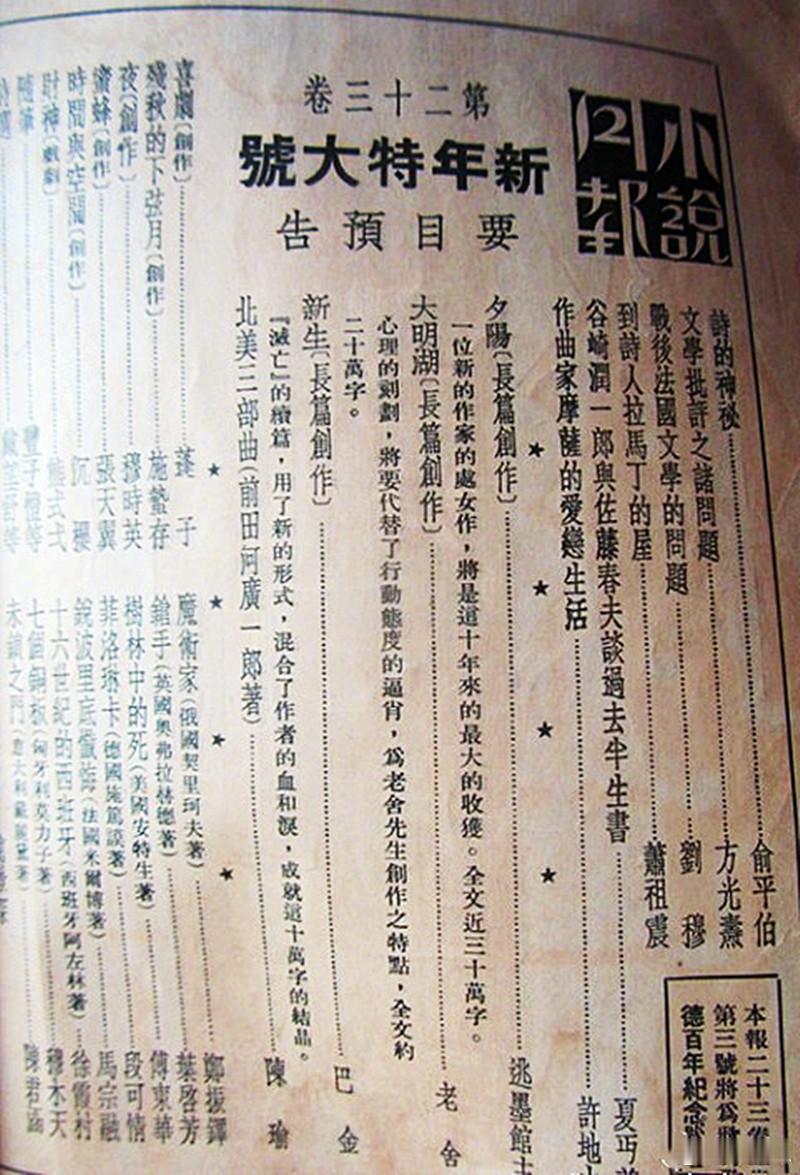 小說月報
第二十三卷
新年特大號
要目預告
詩的神秘……俞平伯
文學批評之諸問題……方光燾
戰後法國文學的問題……劉穆
到詩人拉馬丁的屋……蕭祖震
谷崎潤一郎與佐藤春夫談過去半生書……夏丏
作曲家摩薩的愛戀生活……許地
★★★★
夕陽(長篇創作)……逃墨館主
一位新的作家的處女作，將是這十年來的最大的收獲。全文近三十萬字。
大明湖(長篇創作)……老舍
心理的刻劃，將要代替了行動態度的逼肖，爲老舍先生創作之特點，全文約
二十萬字。
新生(長篇創作)……巴金
『滅亡』的續篇，用了新的形式，混合了作者的血和淚，成就這十萬字的結晶。
北美三部曲(前田河廣一郎著)……陳瑜
★★★★
喜劇(創作)……蓬子
殘秋的下弦月(創作)……施蟄存
夜(創作)……穆時英
蜜蜂(創作)……張天翼
時間與空間(創作)……沉櫻
財神(戲劇)……熊式弌
隨筆……豐子愷等
魔術家(俄國契里珂夫著)……鄭振鐸
鎗手(英國奧弗拉赫德著)……葉啓芳
樹林中的死(美國安特生著)……傅東華
菲洛琳卡(德國施篤謨著)……段可情
銳波里底懺悔(法國米爾博著)……馬宗融
十六世紀的西班牙(西班牙阿左林著)……徐霞村
七個銅板(匈牙利莫力子著)……穆木天
未鎖之門……陳君涵
本報二十三卷
第三號將爲
德百年紀念